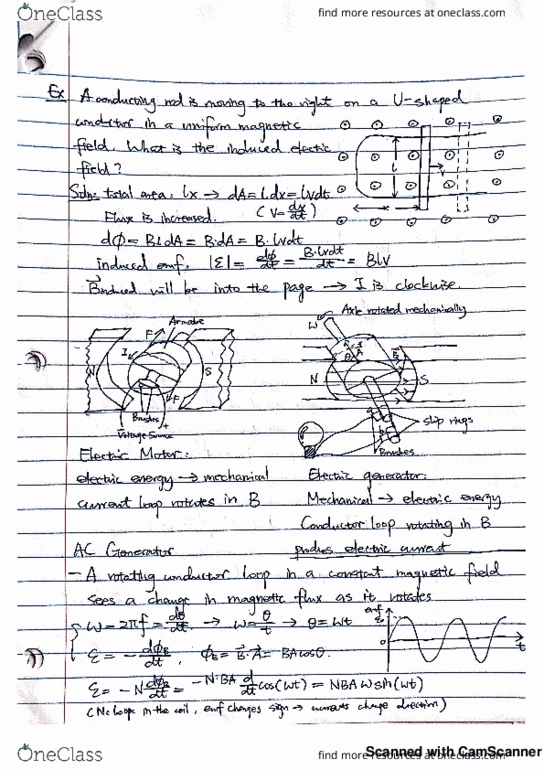 OneClass
find more resources at oneclass.com
Ex A conducting rod is moving to the right on a U-shaped
conductor in a uniform magnetic
field. What is the induced electric
field?
l
v
x
Soln: total area, lx → dA = l.dx = lvdt
Flux is increased. (v = dx/dt)
dΦ = B⊥dA = B.dA = B. lvdt
induced emf. |ε| = dΦ/dt = B.lvdt/dt = Blv
Binduced will be into the page → I is clockwise.
Axle rotated mechanically
Armature
ω
F
I
N
S
F
N
S
B
Brushes
Voltage Source
slip rings
Brushes
Electric Motor:
electric energy → mechanical
current loop rotates in B
Electric generator:
Mechanical → electric energy
Conductor loop rotating in B
produces electric current
AC Generator
- A rotating conductor loop in a constant magnetic field
sees a change in magnetic flux as it rotates
ω = 2πf = dθ/dt → ω = θ/t → θ = ωt
emf
ε
0
t
ε = - dΦB/dt , ΦB = B.A = BAcosθ.
ε = -N dΦB/dt = -N.BA d/dt cos(ωt) = NBAω sin(ωt)
(N: loops in the coil, emf changes sign → currents change direction)
OneClass
find more resources at oneclass.com
Scanned with CamScanner